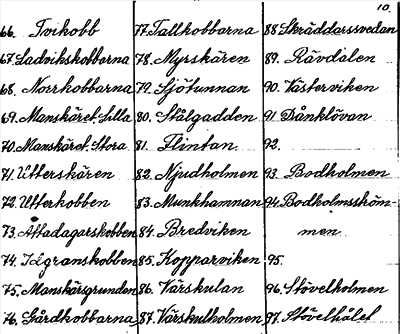 10.
66. Tvikobb
67. Ladvikskobbarna
68. Norrkobbarna
69. Manskäret. Lilla
70. Manskäret. Stora
71. Utterskären
72. Utterkobben
73. Attadagarskobben
74. Idgranskobben
75. Manskärsgrunden
76. Gårdkobbarna
77. Tallkobbarna
78. Myrskären
79. Sjötunnan
80. Stålgadden
81. Flintan
82. Njudholmen
83. Munkhamnan
84. Bredviken
85. Kopparviken
86. Värskulan
87. Värskulholmen
88. Skräddarssvedan
89. Rävdalen
90. Västerviken
91. Dånklövan
92.
93. Bodholmen
94. Bodholmsström-
men
95.
96. Stövelholmen
97. Stövelhålet